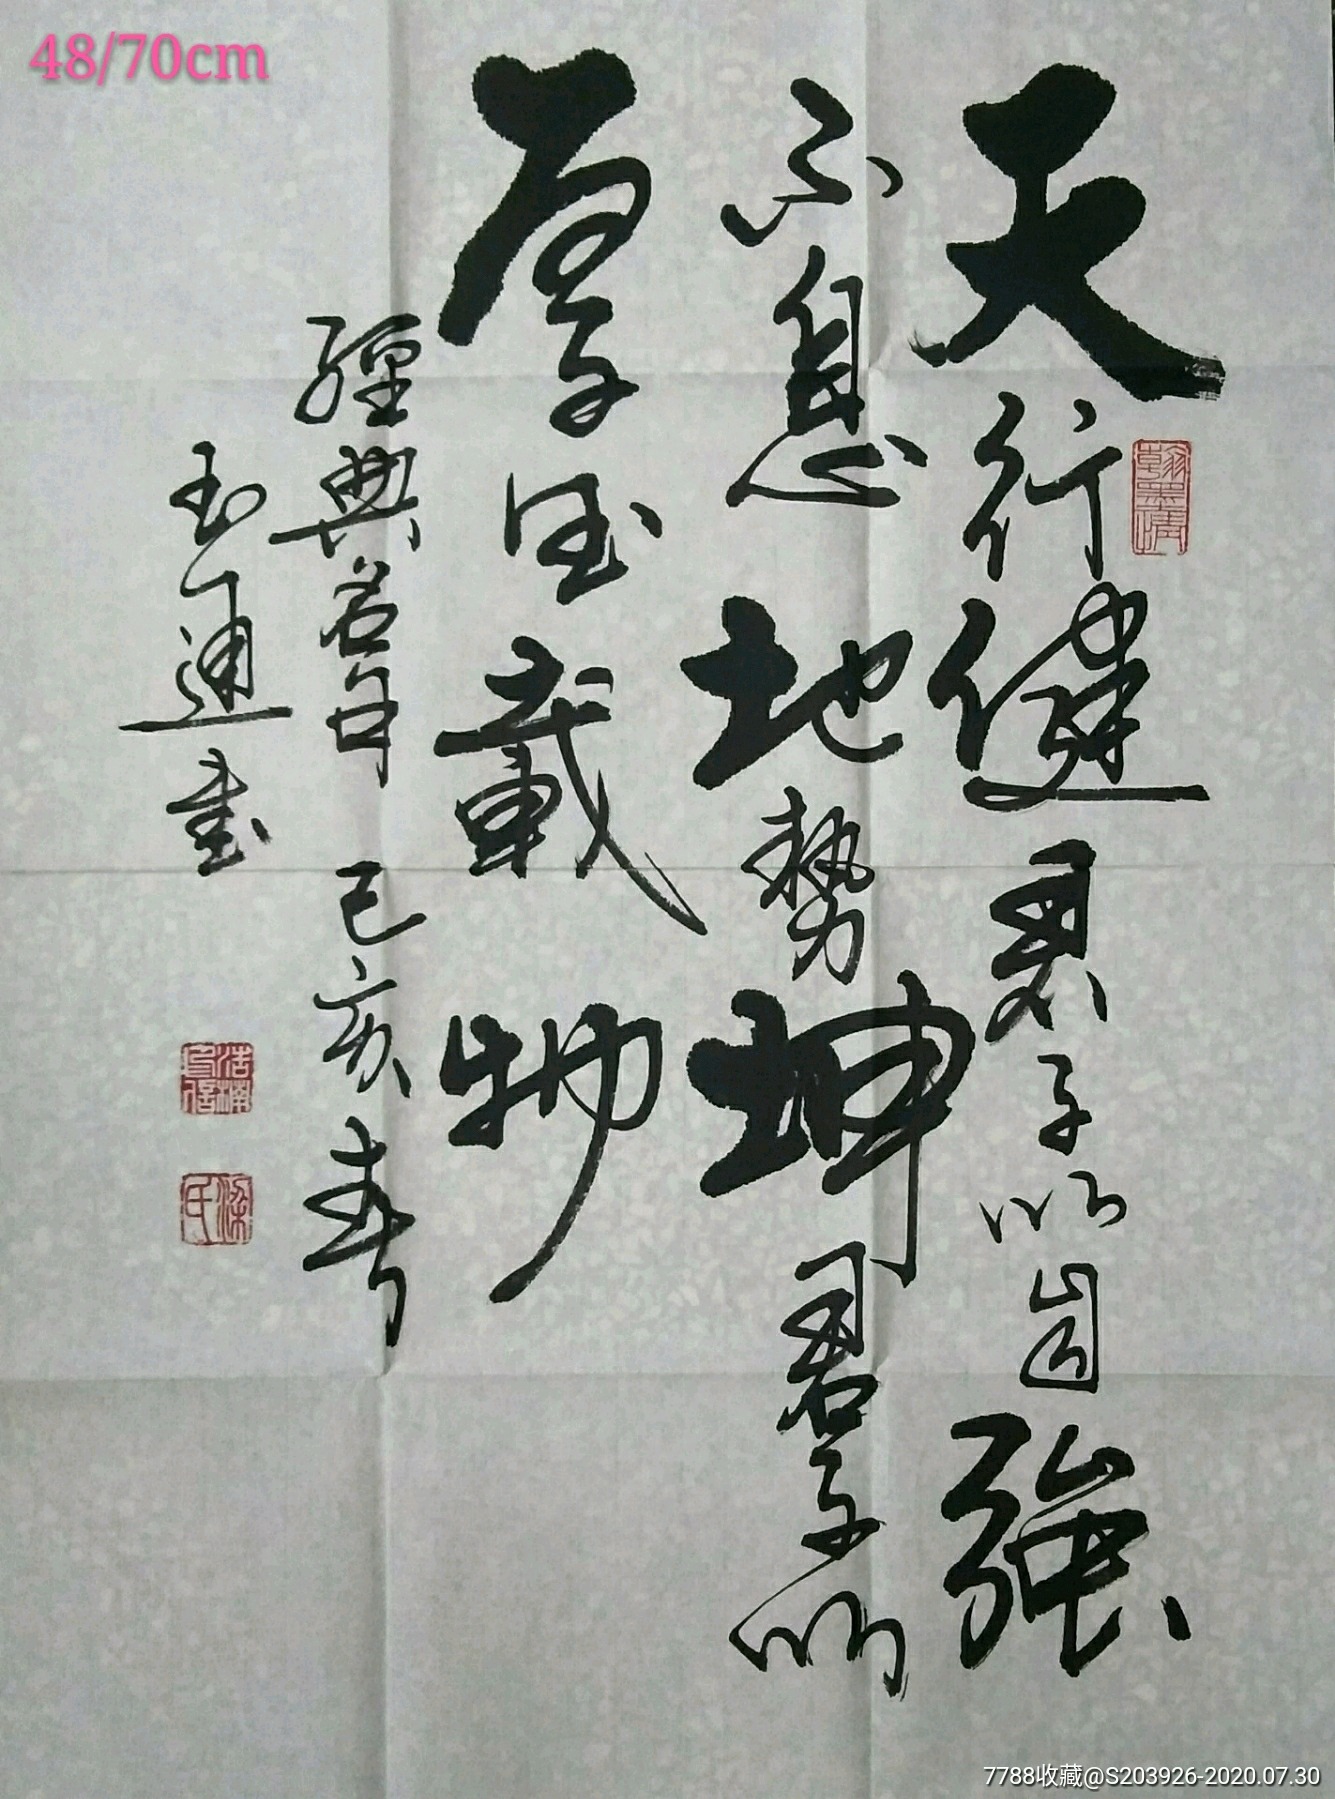 48/70cm
天行健君子以自強
不息地勢坤君子以
厚德載物
經典名句 己亥春
玉通書
翰墨情
梁氏
7788收藏@S203926-2020.07.30